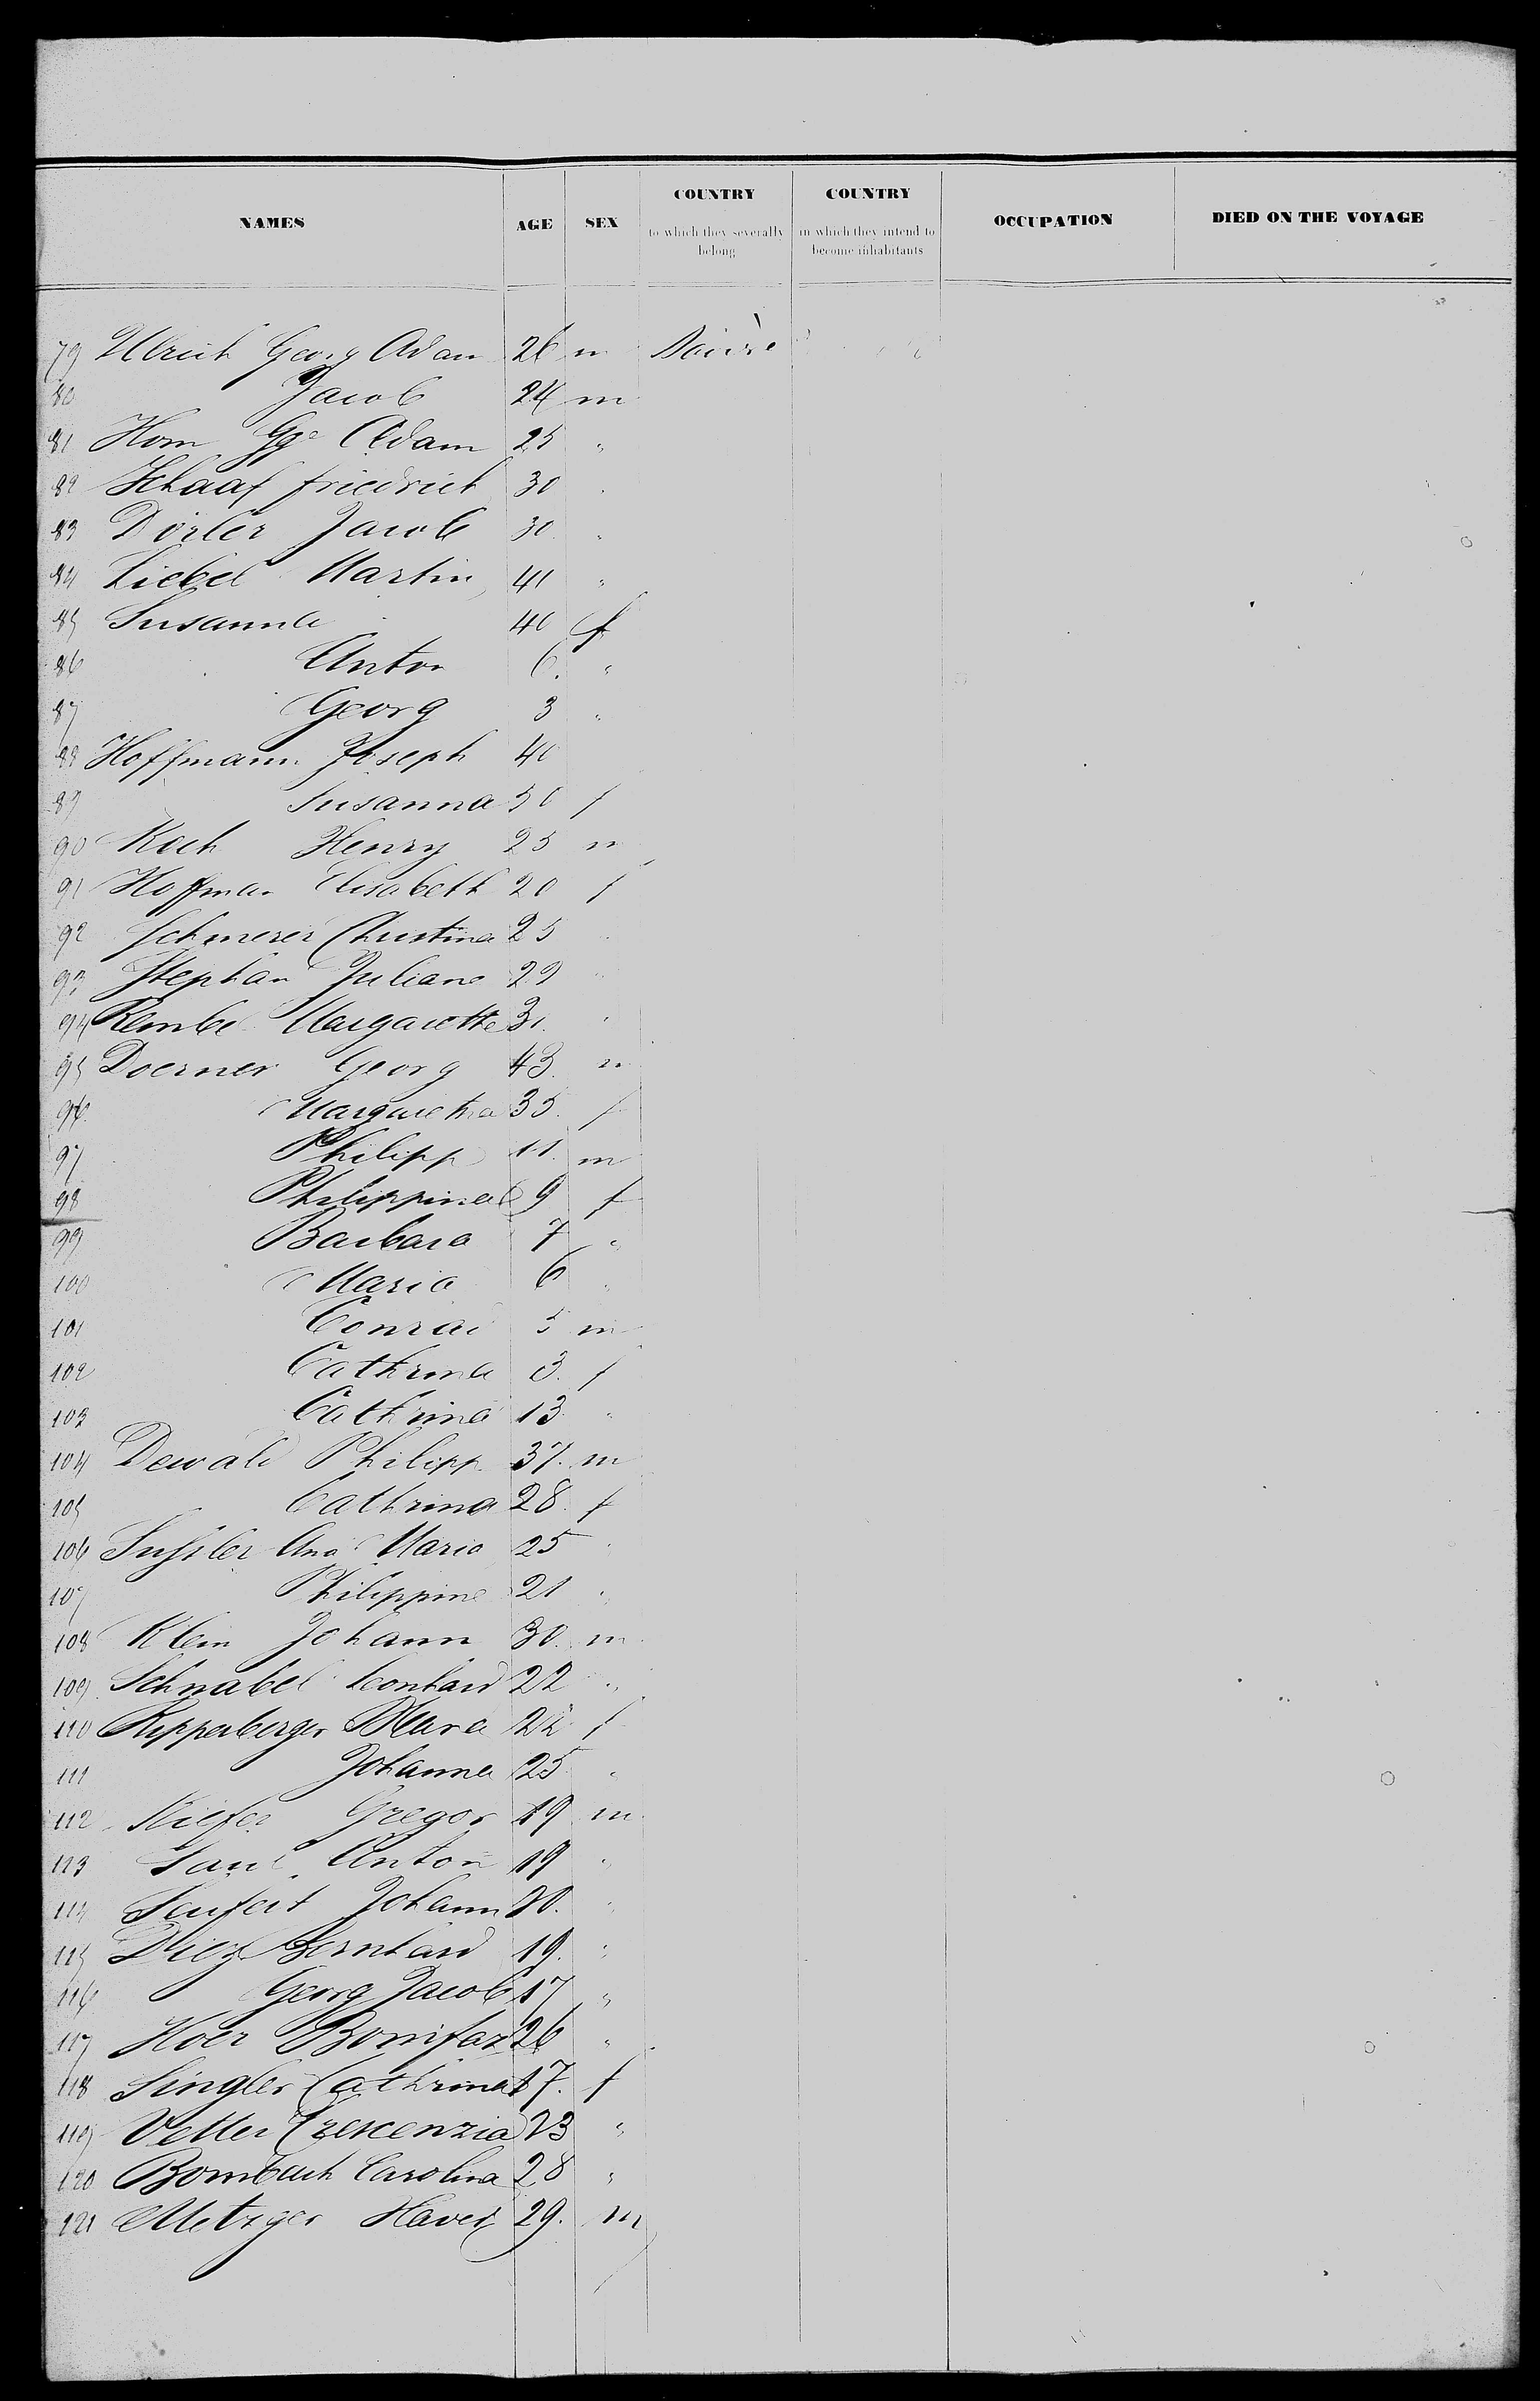 NAMES AGE SEX COUNTRY to which they severally belong COUNTRY in which they intend to become inhabitants OCCUPATION DIED ON THE VOYAGE
79 Ulrich Georg Adam 26 m
80 Jacob 24 m
81 Horn Gge Adam 25 "
82 Schaaf friedrich 30 "
83 Dörler Jacob 30 "
84 Liebel Martin 41 "
85 Susanna 40 f
86 Anton 6. "
87 Georg 3 "
88 Hoffmann Joseph 40
89 Susanna 50 f
90 Koch Henry 25 m
91 Hoffman Elisabeth 20 f
92 Schmerer Christina 25
93 Stephan Juliane 29 "
94 Rembe Margarette 31. "
95 Doerner Georg 43. m
96. Margaretha 35. f
97 Philipp 11. m
98 Philippina 9 f
99 Barbara 7 "
100 Maria 6 "
101 Conrad 5 m
102 Cathrina 3. f
103 Cathrina 13. "
104 Dewald Philipp. 37. m
105 Cathrina 28. f
106 Sussler Ana Maria 25 "
107 Philippine 21 "
108 Klein Johann 30. m
109 Schnabel Leonhard 22 "
110 Ripperberger Maria 22 f
111 Johanna 25 "
112 Kiefer Gregor 19 m
113 Anton 19 "
114 Seufert Johann 20. "
115 Diez Bernhard 19. "
116 Georg Jacob 17 "
117 Hoer Bonifaz 26 "
118 Singler Cathrina 17. f
119 Vetter Crescenzia 23 "
120 Bombach Carolina 28 "
121 Metzger Xaver 29. m